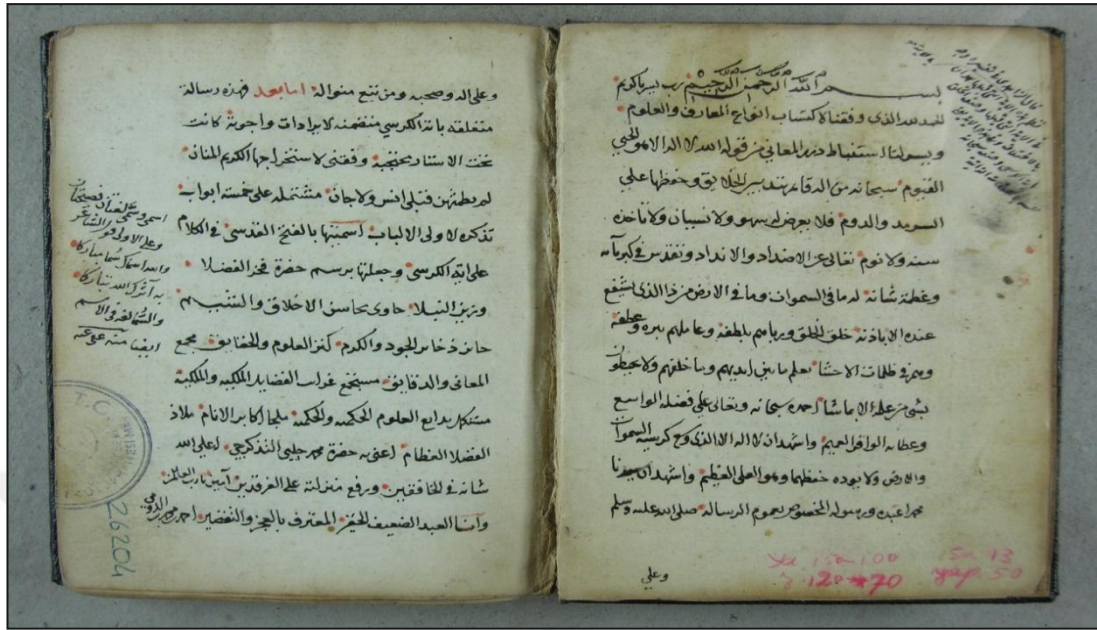 بسم الله الرحمن الرحيم رب يسر يا كريم
الحمد لله الذي وفقنا لاكتساب انواع المعارف والعلوم
ويسر لنا استنباط درر المعاني من قوله الله لا اله الا هو الحي
القيوم سبحانه من الدقايق بتدبير الخلايق وحفظها علي
السرمد والدوم فلا يعرض له سهو ولا نسيان ولا تاخذه
سنة ولا نوم تعالى عن الاضداد والانداد وتقدس في كبريائه
وعظمة شانه له ما في السموات وما في الارض من ذا الذي يشفع
عنده الا باذنه خلق الخلق ورباهم بلطفه وعاملهم ببره وعطفه
وهم في ظلمات الاحشا يعلم ما بين ايديهم وما خلفهم ولا يحيطون
بشي من علمه الا بما شا احمده سبحانه وتعالى علي فضله الواسع
وعطائه الوافر العميم واشهد ان لا اله الا الله الذي وسع كرسيه السموات
والارض ولا يوده حفظهما وهو العلي العظيم واشهد ان سيدنا
محمدا عبده ورسوله المخصوص بعموم الرسالة صلى الله عليه وسلم
وعلي
وعلي اله وصحبه ومن تتبع منواله اما بعد فهذه رسالة
متعلقة باية الكرسي متضمنة لايرادات واجوبة كانت
تحت الاستار محتجبة وفقني لاستخراجها الكريم المنان
لم يطمثهن قبلي انس ولا جان مشتملة علي خمسة ابواب
تذكرة لاولي الالباب اسميتها بالفتح القدسي في الكلام
علي اية الكرسي وجعلتها برسم حضرة فخر الفضلا
وزين النبلا حاوي محاسن الاخلاق والشيم
حائز ذخاير الجود والكرم كنز العلوم والحقايق مجمع
المعاني والدقايق مستجمع غراب الفضايل الملكية والملكية
متكلم بدايع العلوم الحكمية والحكمية ملجا اكابر الانام ملاذ
الفضلا العظام اعني به حضرة محمد چلبي التذكرجي اعلي الله
شانه في الخافقين ورفع منزلته علي الفرقدين آمين يا رب العالمين
وانا العبد الضعيف الحقير المعترف بالعجز والتقصير احمد
اسم وسمى لغتان فصيحتان
وعلي الاولي قول الشاعر
والله اسماك سما مباركا
به آثرك الله تباركا
والسم لغة في الاسم
ايضا منه عفي عنه
T.C.
26204
100
13
120 70
50